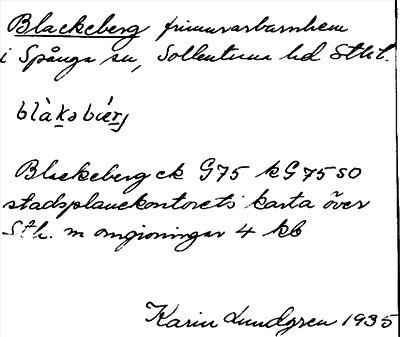 Blackeberg primvarbarnhem
i Spånga sn, Sollentuna hd Sthl.
blàkəbiérj
Blackeberg ek G75 kG75 SO
stadsplanekontorets karta över
Sth. m omgivningar 4 kb
Karin Lundgren 1935